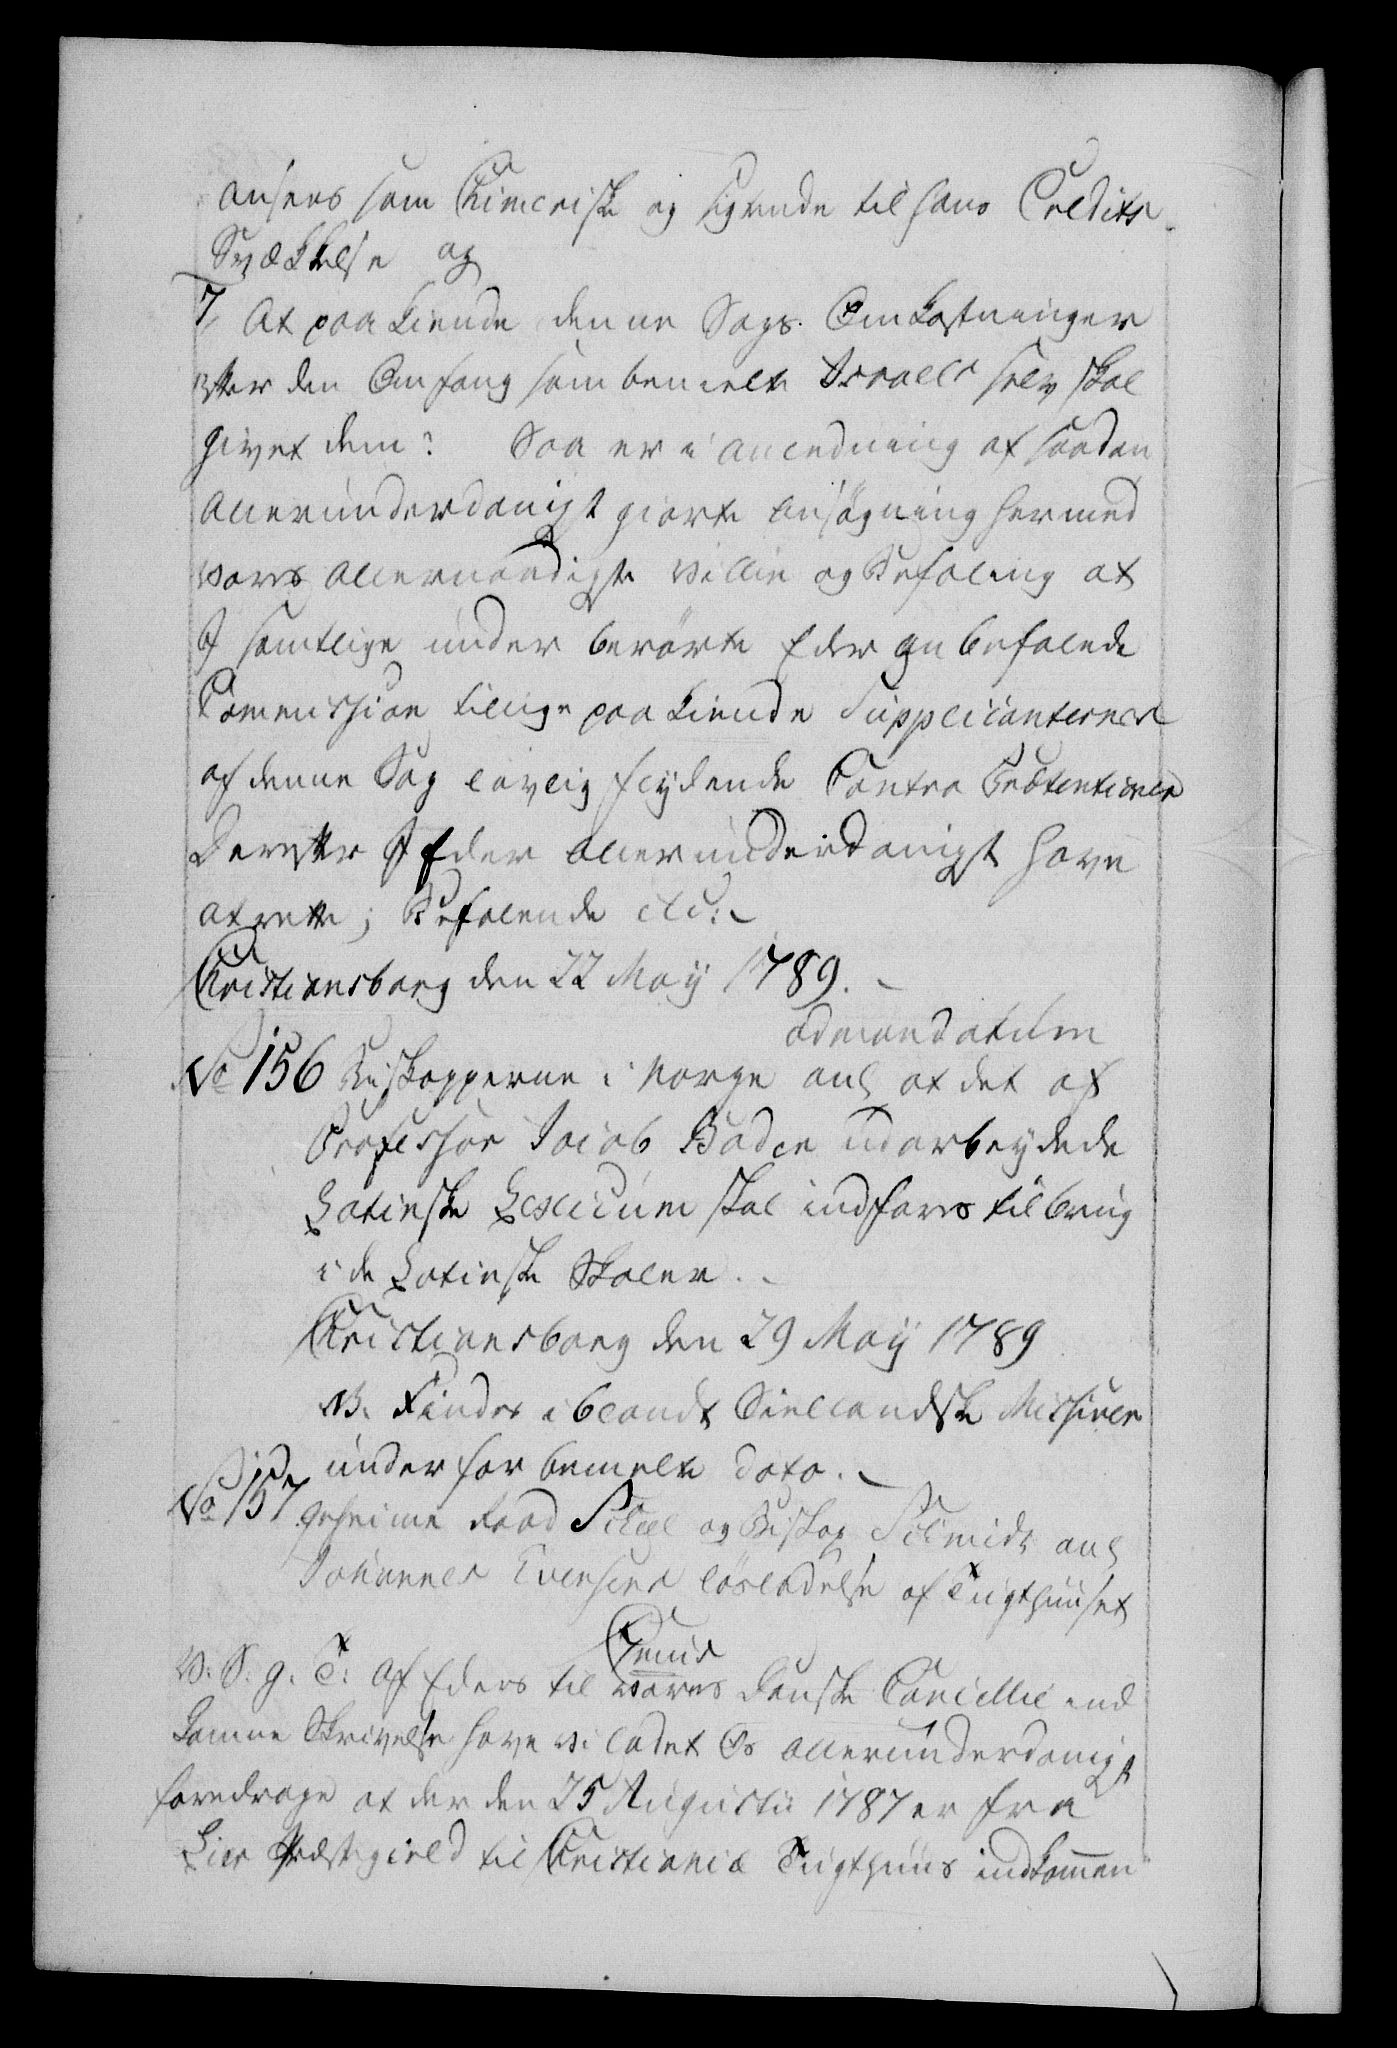 ansees som Chimeriske og sigtende til hans Credits
Svækkelse og
7, At paa kiende denne Sags Omkostninger
efter den Omfang som benævnte Israels selv skal
givet dem: Saa er i anledning af saadan
allerunderdanigst giorte Ansøgning hermed
vores allernaadigste Villie og Befaling at
I samtlige under berørte Eder anbefalede
Commission tillige paa kiende Supplicanternes
af denne Sag lovlig flydende Contra Prætentioner
Derefter I Eder allerunderdanigst have
at rette; Befalende etc:
Christiansborg den 22 Maij 1789.
ad mandatum
No 156 Biskopperne i Norge anl at det af
Professor Jacob Baden udarbeydede
Latinske Lexicum skal indføres til brug
i de Latinske Skoler.
Christiansborg den 29 Maij 1789
NB. Findes iblandt Siellandske Missiver
under for bemelte dato.
No 157 Geheime Raad Scheel og Biskop Schmidt anl
Johannes Evensens løsladelse af Tugthuuset
Genus
V: S: g: T: Af Eders til vores danske Cancellie ind
komne Skrivelse have vi ladet Os allerunderdanigst
foredrage at der den 25 Augusti 1787 er fra
Lier Præstegield til Christiania Tugthuus indkommen